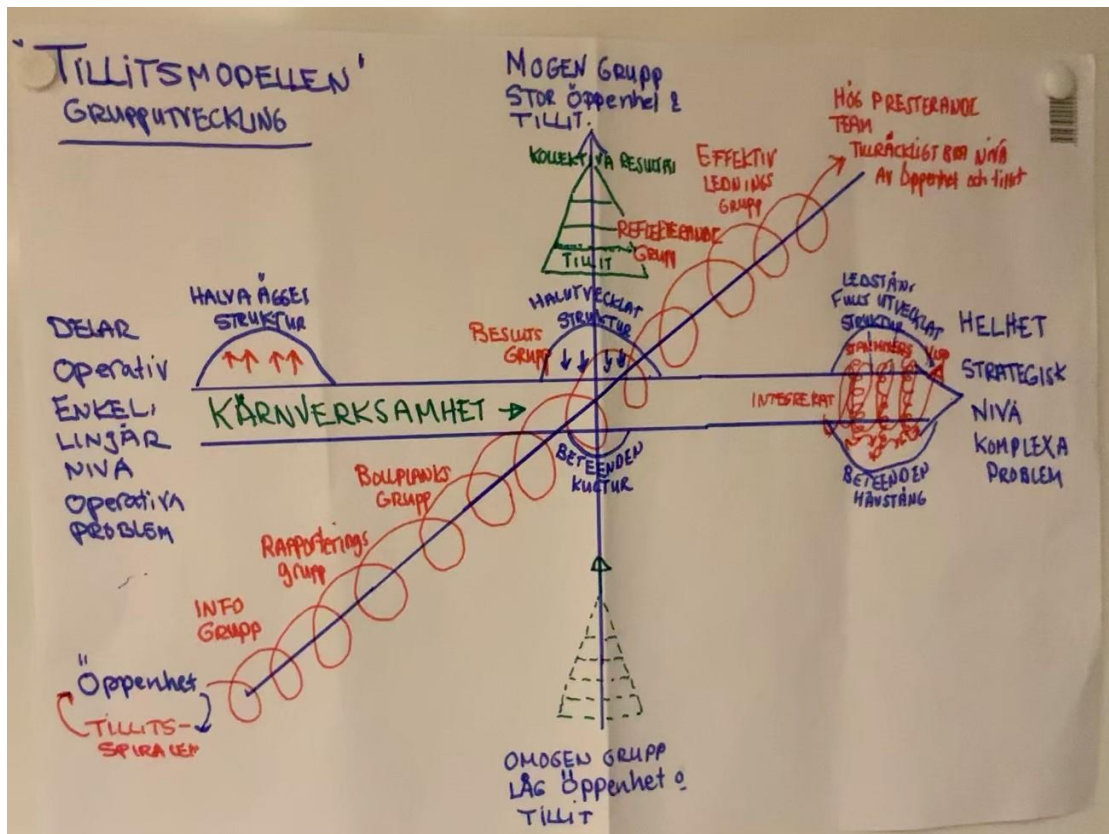 "TILLITSMODELLEN"
GRUPPUTVECKLING
MOGEN GRUPP
STOR Öppenhet &
TILLIT.
HÖG PRESTERANDE
TEAM
TILLRÄCKLIGT BRA NIVÅ
AV Öppenhet och tillit
KOLLEKTIVA RESULTAT
EFFEKTIV
LEDNINGS
GRUPP
REFLEKTERANDE
GRUPP
TILLIT
HALVA ÄGGET
STRUKTUR
BESLUTS
GRUPP
HALVUTVECKLAT
STRUKTUR
FULLT UTVECKLAT
STRUKTUR
DELAR
Operativ
ENKEL,
LINJÄR
NIVÅ
Operativa
PROBLEM
KÄRNVERKSAMHET →
INTEGRERAT
HELHET
STRATEGISK
NIVÅ
KOMPLEXA
PROBLEM
BETEENDEN
KULTUR
BETEENDEN
HÄVSTÅNG
BOLLPLANKS
GRUPP
Rapporterings
grupp
INFO
GRUPP
Öppenhet
TILLITS-
SPIRALEN
OMOGEN GRUPP
LÅG Öppenhet o
TILLIT